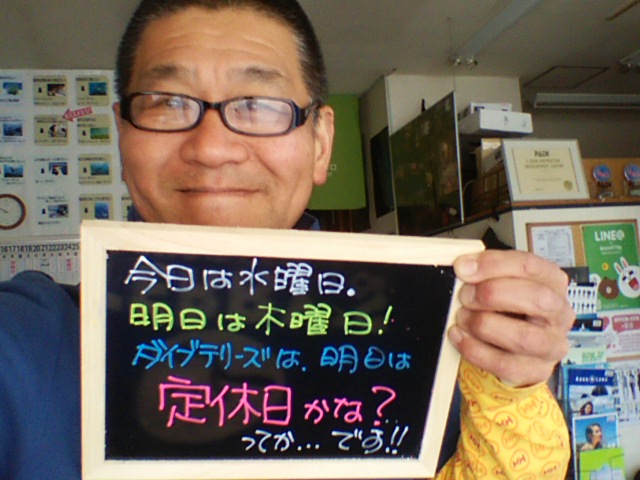 今日は水曜日.
明日は木曜日!
ダイブテリーズは.明日は
定休日かな?
ってか...です!!
PADI
LINE@
16 17 18 19 20 21 22 23 24 25